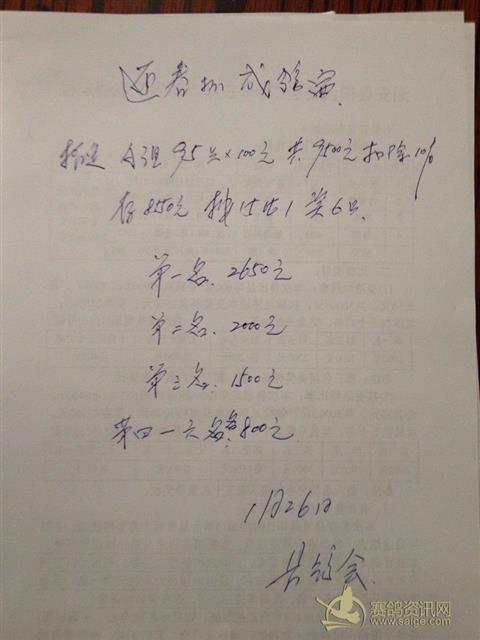 迎春杯成鸽赛
指定 A组 95只×100元 共9500元 扣除10%
存8550元 按15比1 奖6只.
第一名. 2650元
第二名. 2000元
第三名. 1500元
第四一六名各800元
1月26日
县鸽会.
赛鸽资讯网
www.saige.com